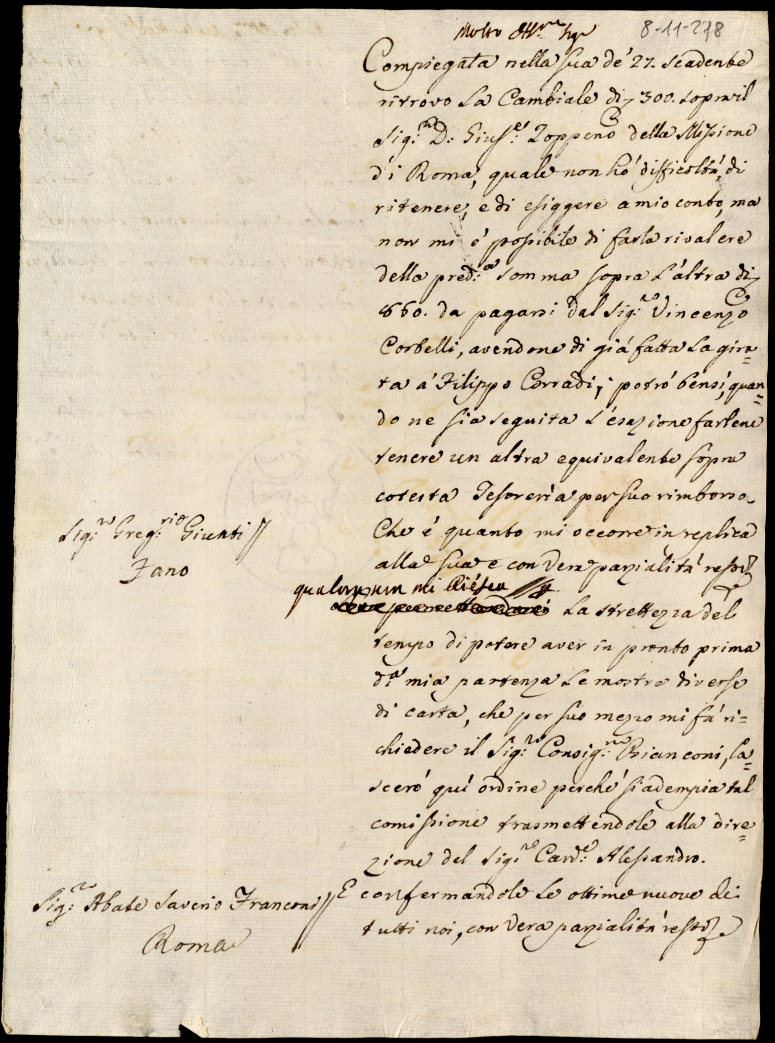 8-11-278
Molto Ill.re Sig.re
Compiegata nella sua de' 27. scadente
ritrovo la Cambiale di 300. sopra il
Sig.re D. Gius.e Zoppeno della Missione
di Roma, quale non hò difficoltà di
ritenere, e di esiggere a mio conto, ma
non mi é possibile di farla rivalere
della pred.a somma sopra l'altra di
860. da pagarsi dal Sig.re Vincenzo
Corbelli, avendone di già fatta la gira=
ta á Filippo Corradi, potró bensí, quan=
do ne sia seguita l'esazione farlene
tenere un altra equivalente sopra
cotesta Tesoreria per suo rimborso.
Che é quanto mi occorre in replica
alla sua e con vera parzialitá resto
Sig.re Greg.rio Giunti
Fano
qualunque mi la strettezza del
tempo di potere aver in pronto prima
d.a mia partenza le mostre diverse
di carta, che per suo mezzo mi fá ri=
chiedere il Sig.re Consig.re Bianconi, la=
sceró quí ordine perché si adempia tal
comissione trasmettendole alla dire=
zione del Sig.re Card.e Alessandro.
E confermandole le ottime nuove di
tutti noi, con vera parzialitá resto
Sig.re Abate Saverio Franconi
Roma